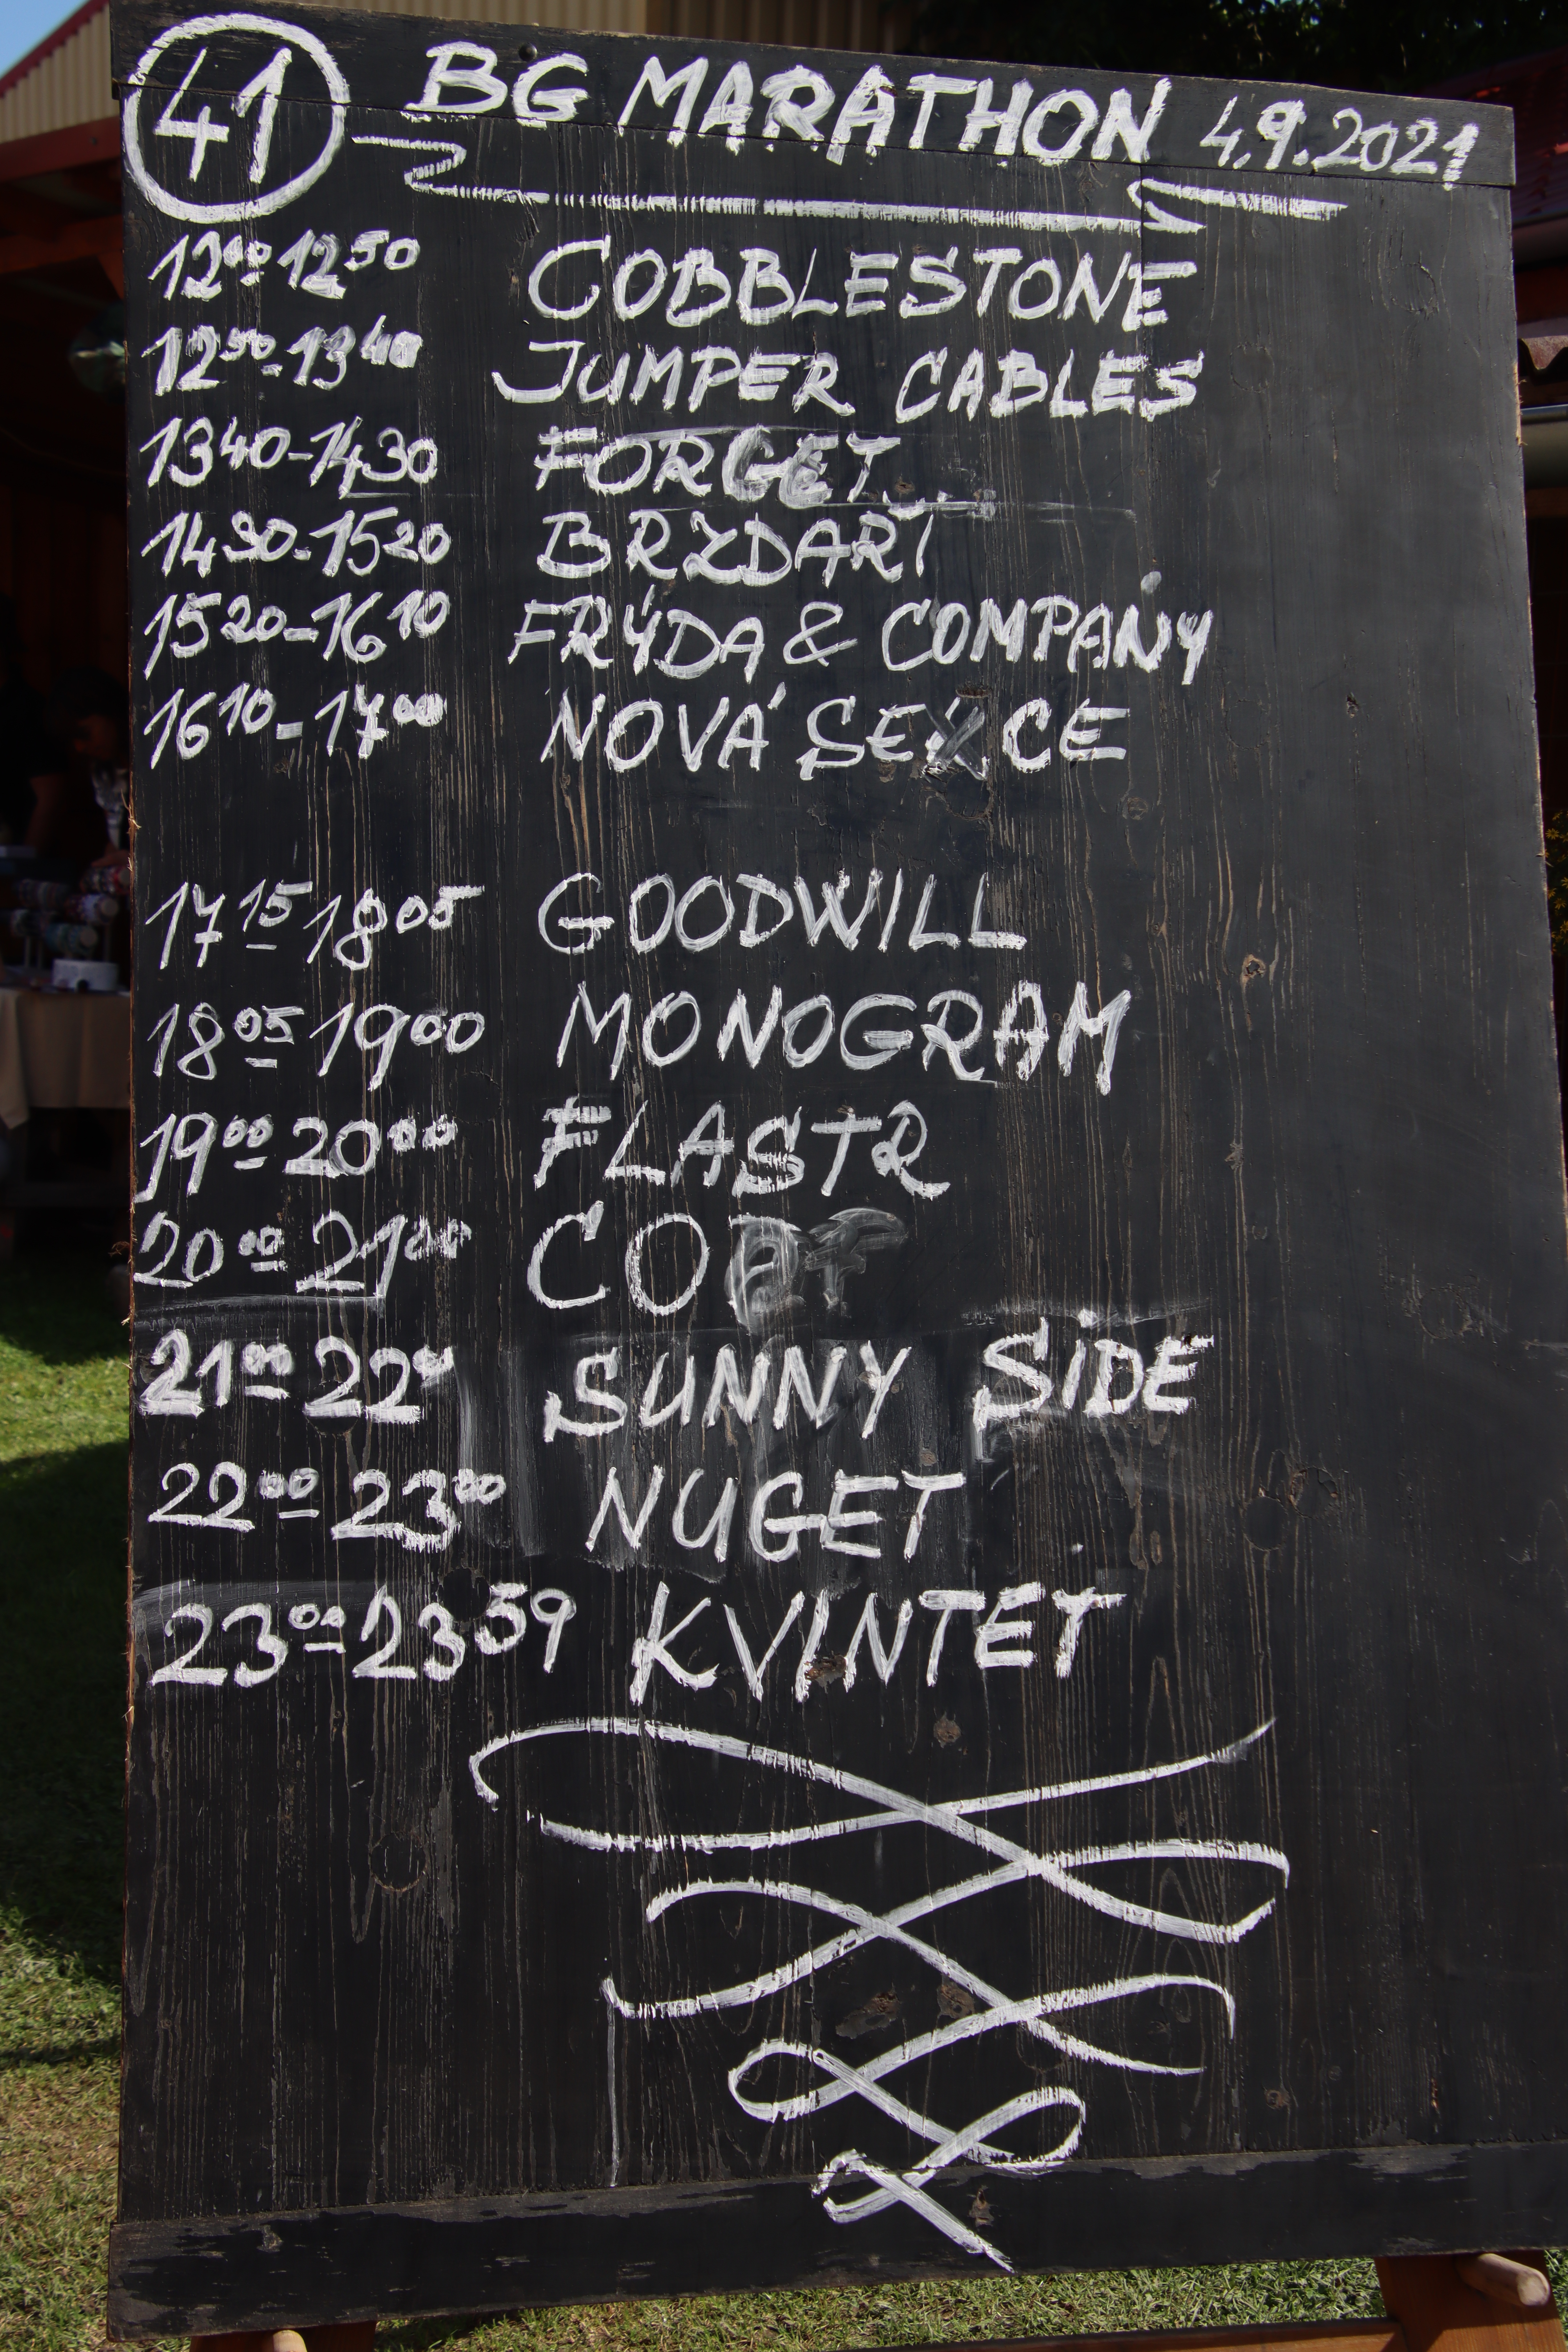 41 BG MARATHON 4.9.2021
12 00 - 12 50 COBBLESTONE
12 50 - 13 40 JUMPER CABLES
13 40 - 14 30 FORGET...
14 30 - 15 20 BRZDAŘI
15 20 - 16 10 FRÝDA & COMPAŇY
16 10 - 17 00 NOVÁ SEKCE
17 15 - 18 05 GOODWILL
18 05 - 19 00 MONOGRAM
19 00 - 20 00 FLASTR
20 00 - 21 00 COP
21 00 - 22 00 SUNNY SIDE
22 00 - 23 00 NUGET
23 00 - 23 59 KVINTET